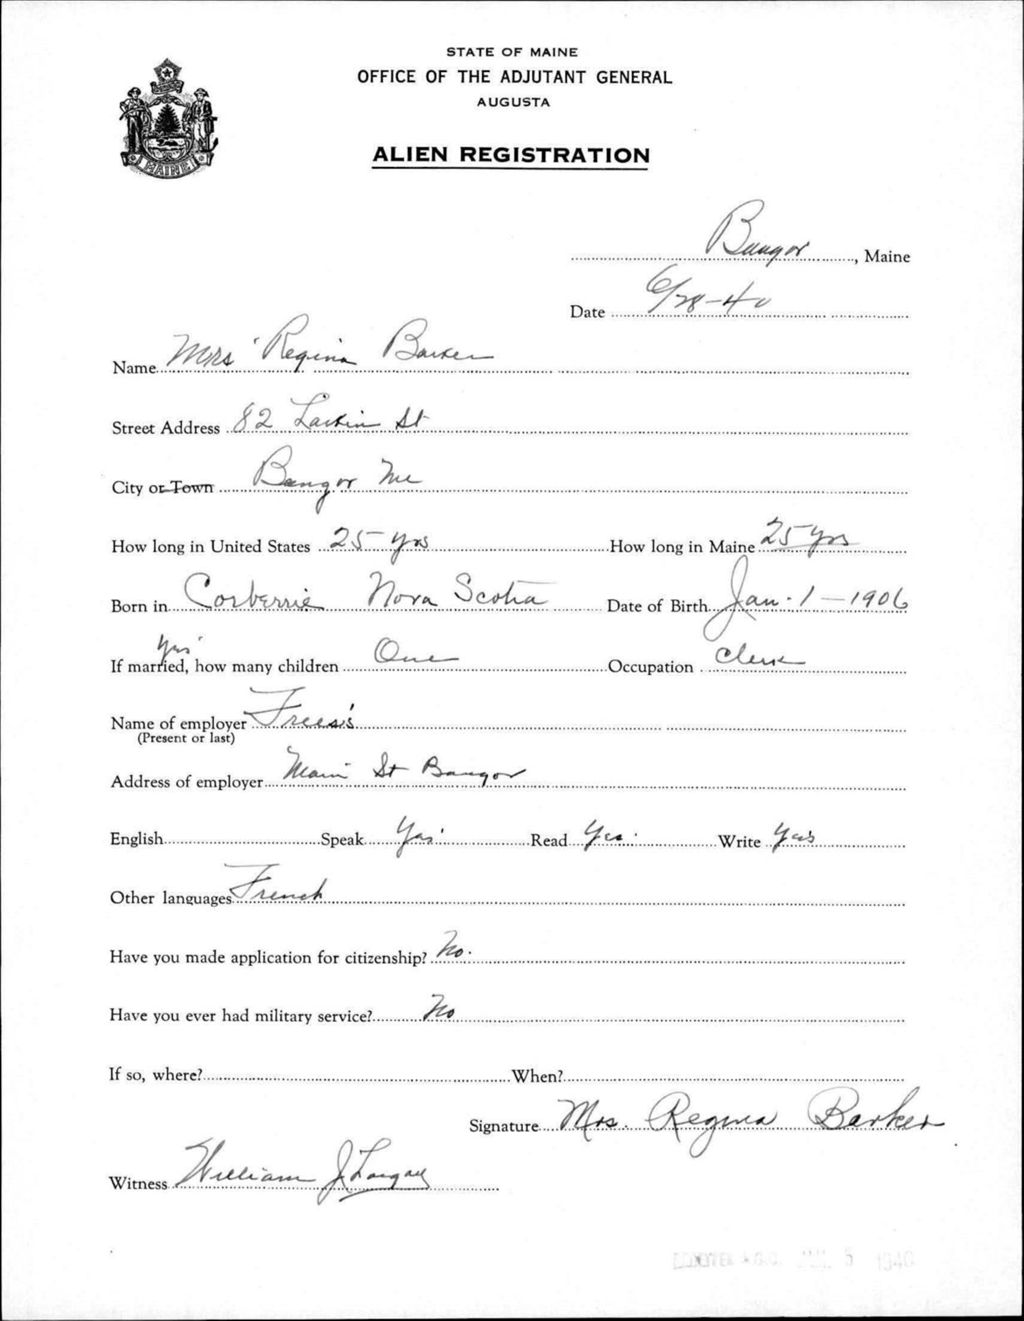 STATE OF MAINE
OFFICE OF THE ADJUTANT GENERAL
AUGUSTA
MAINE
ALIEN REGISTRATION
Bangor, Maine
Date 6/28-40
Name Mrs Regina Barker
Street Address 82 Larkin St
City or Town Bangor Me
How long in United States 25 yrs How long in Maine 25 yrs
Born in Corberrie Nova Scotia Date of Birth Jan. 1 - 1906
yes
If married, how many children One Occupation Clerk
Name of employer Freese's
(Present or last)
Address of employer Main St Bangor
English Speak Yes Read Yes Write Yes
Other languages French
Have you made application for citizenship? No.
Have you ever had military service? No
If so, where? When?
Signature Mrs. Regina Barker
Witness William J.
1940